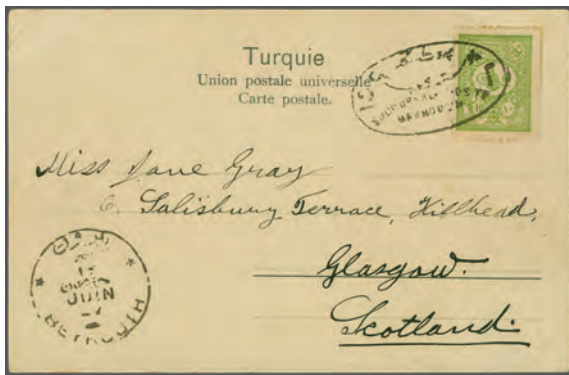 Turquie
Union postale universelle
Carte postale.
Miss Jane Gray
6. Salisbury Terrace, Hillhead,
Glasgow.
Scotland.
بيروت
JUIN
BEYROUTH